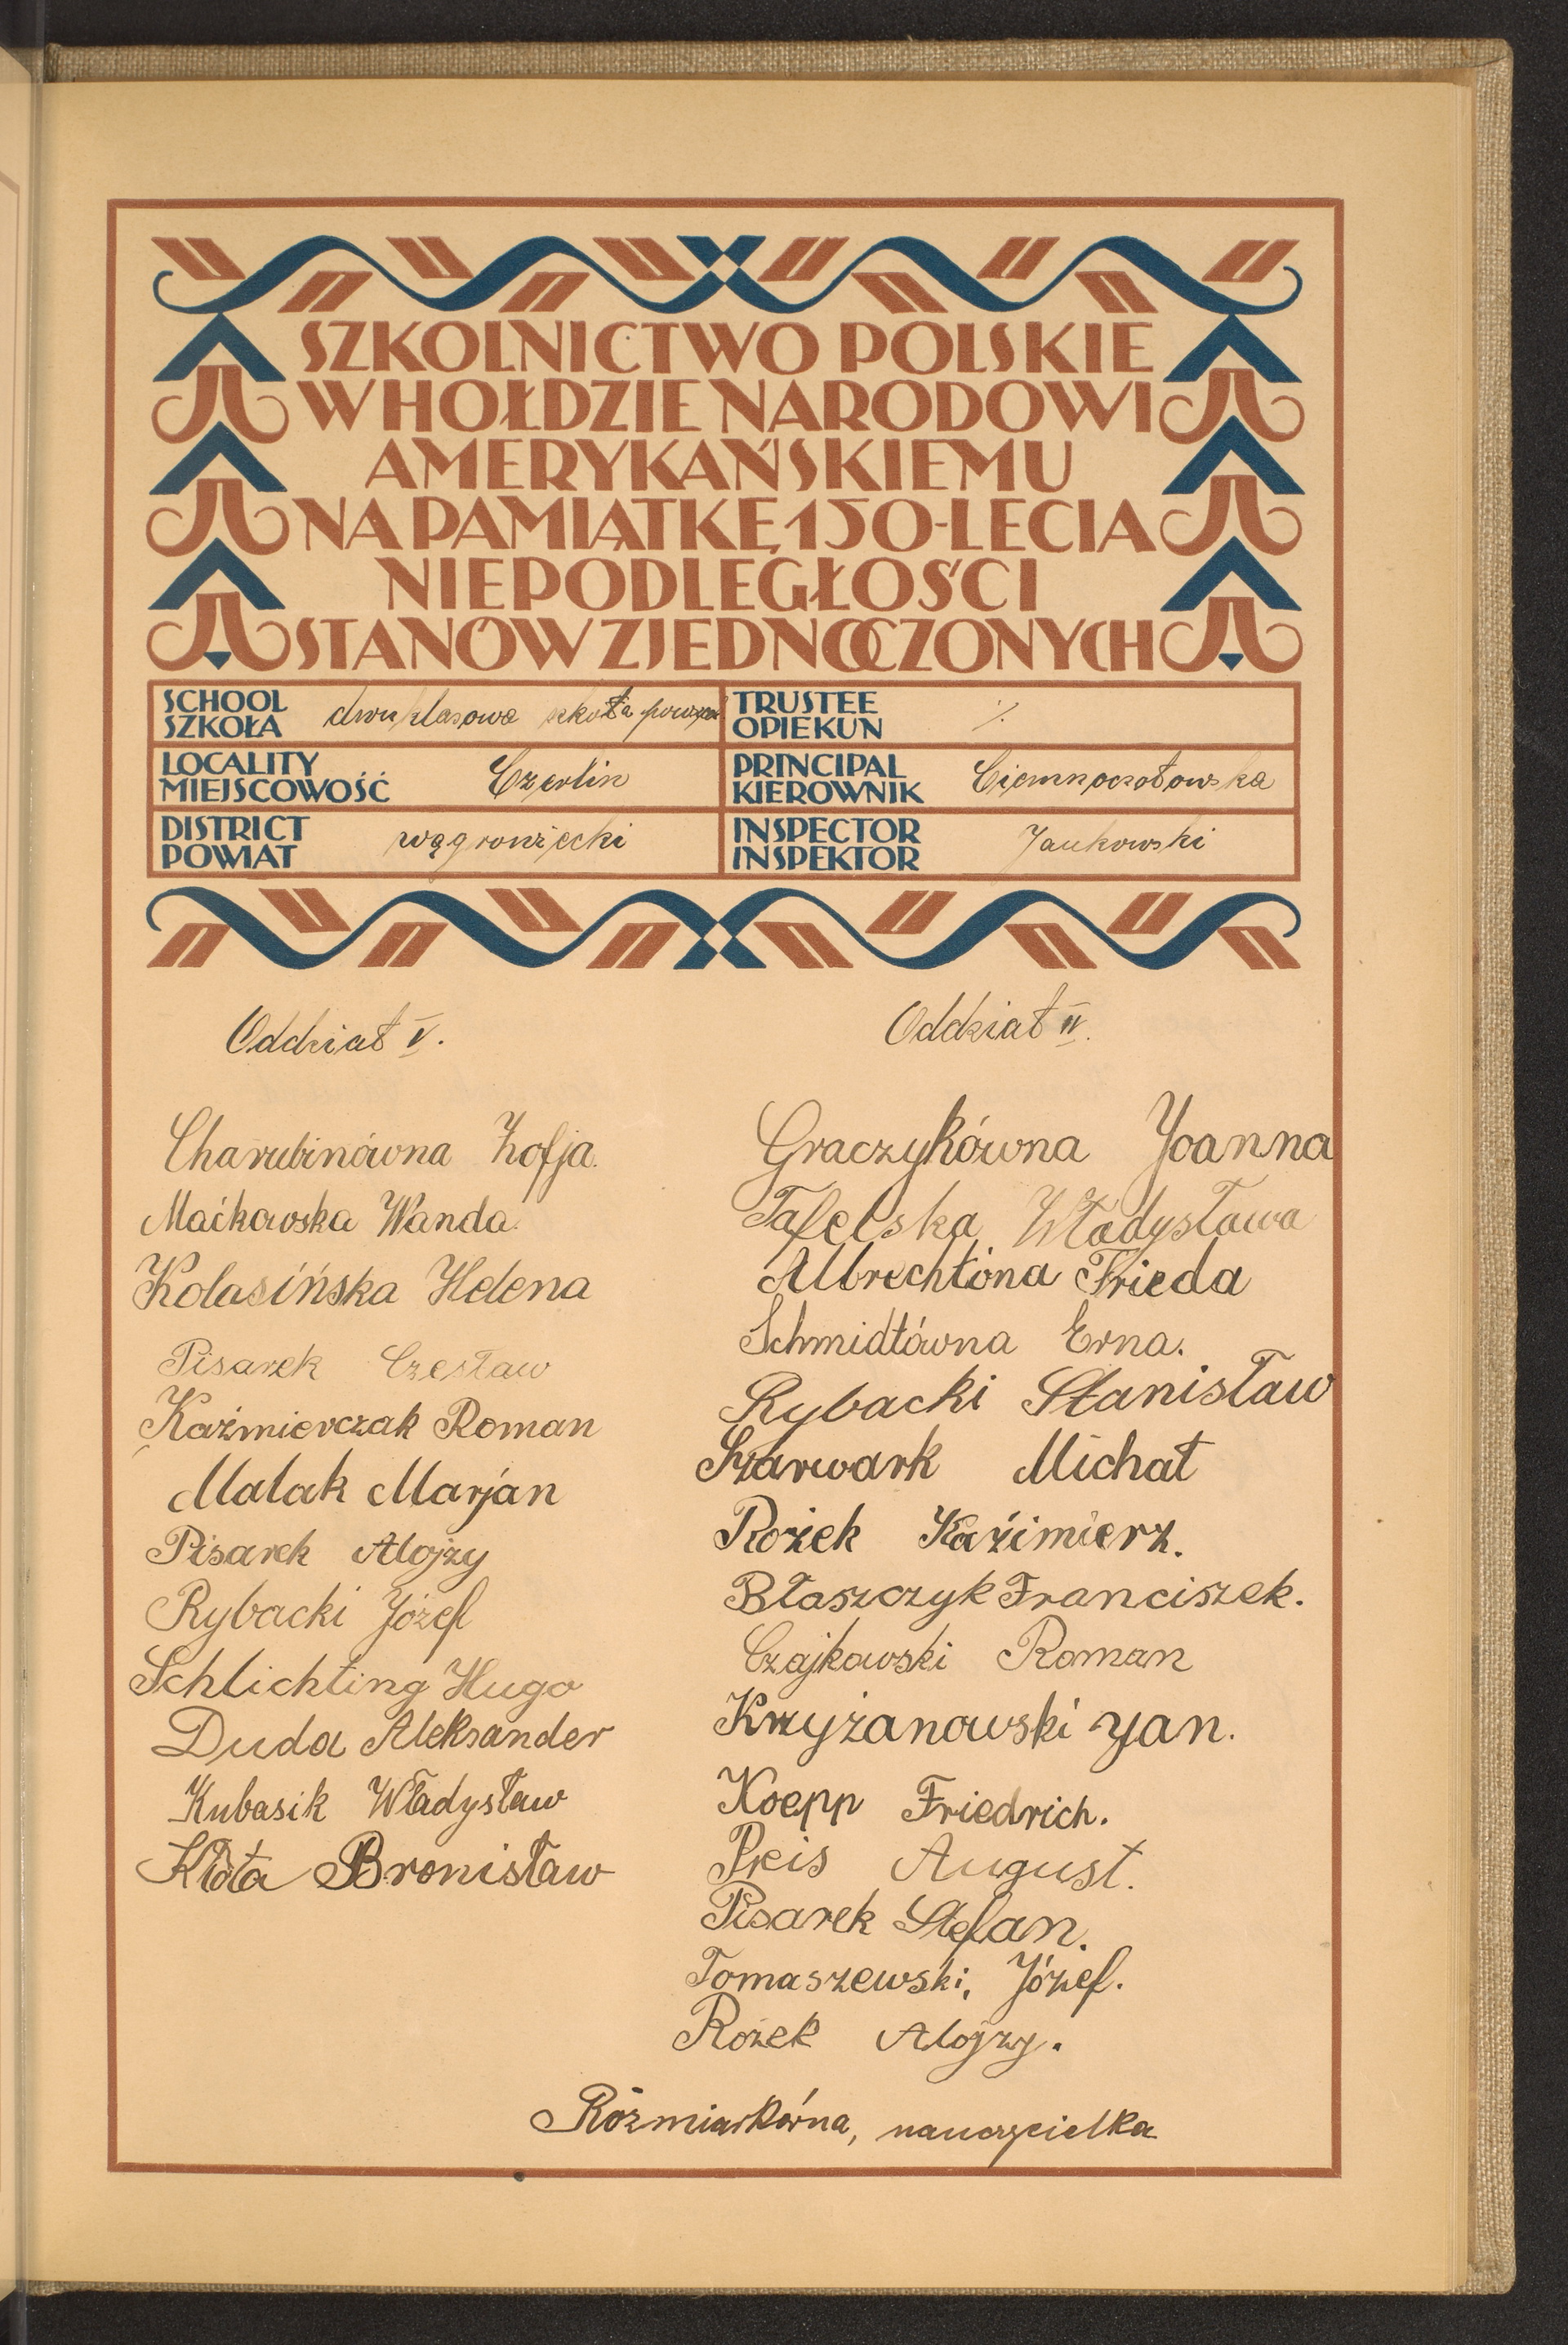 SZKOLNICTWO POLSKIE
W HOŁDZIE NARODOWI
AMERYKAŃSKIEMU
NA PAMIĄTKĘ 150-LECIA
NIEPODLEGŁOŚCI
STANÓW ZJEDNOCZONYCH
SCHOOL
SZKOŁA dwuklasowa szkoła powsz
TRUSTEE
OPIEKUN ⁒
LOCALITY
MIEJSCOWOŚĆ Czerlin
PRINCIPAL
KIEROWNIK Ciemnoczołowska
DISTRICT
POWIAT wągrowiecki
INSPECTOR
INSPEKTOR Jankowski
Oddział V.
Charubinówna Zofja.
Maćkowska Wanda.
Kolasińska Helena
Pisarek Czesław
Kaźmierczak Roman
Malak Marjan
Pisarek Alojzy
Rybacki Józef
Schlichting Hugo
Duda Aleksander
Kubasik Władysław
Kłota Bronisław
Oddział IV.
Graczykówna Joanna
Tafelska Władysława
Albrechtóna Frieda
Schmidtówna Erna.
Rybacki Stanisław
Szarwark Michał
Rożek Kaźimierz.
Błaszczyk Franciszek.
Czajkowski Roman
Krzyżanowski Jan.
Koepp Friedrich.
Preis August.
Pisarek Stefan.
Tomaszewski, Józef.
Rożek Alojzy.
Rózmiarkówna, nauczycielka